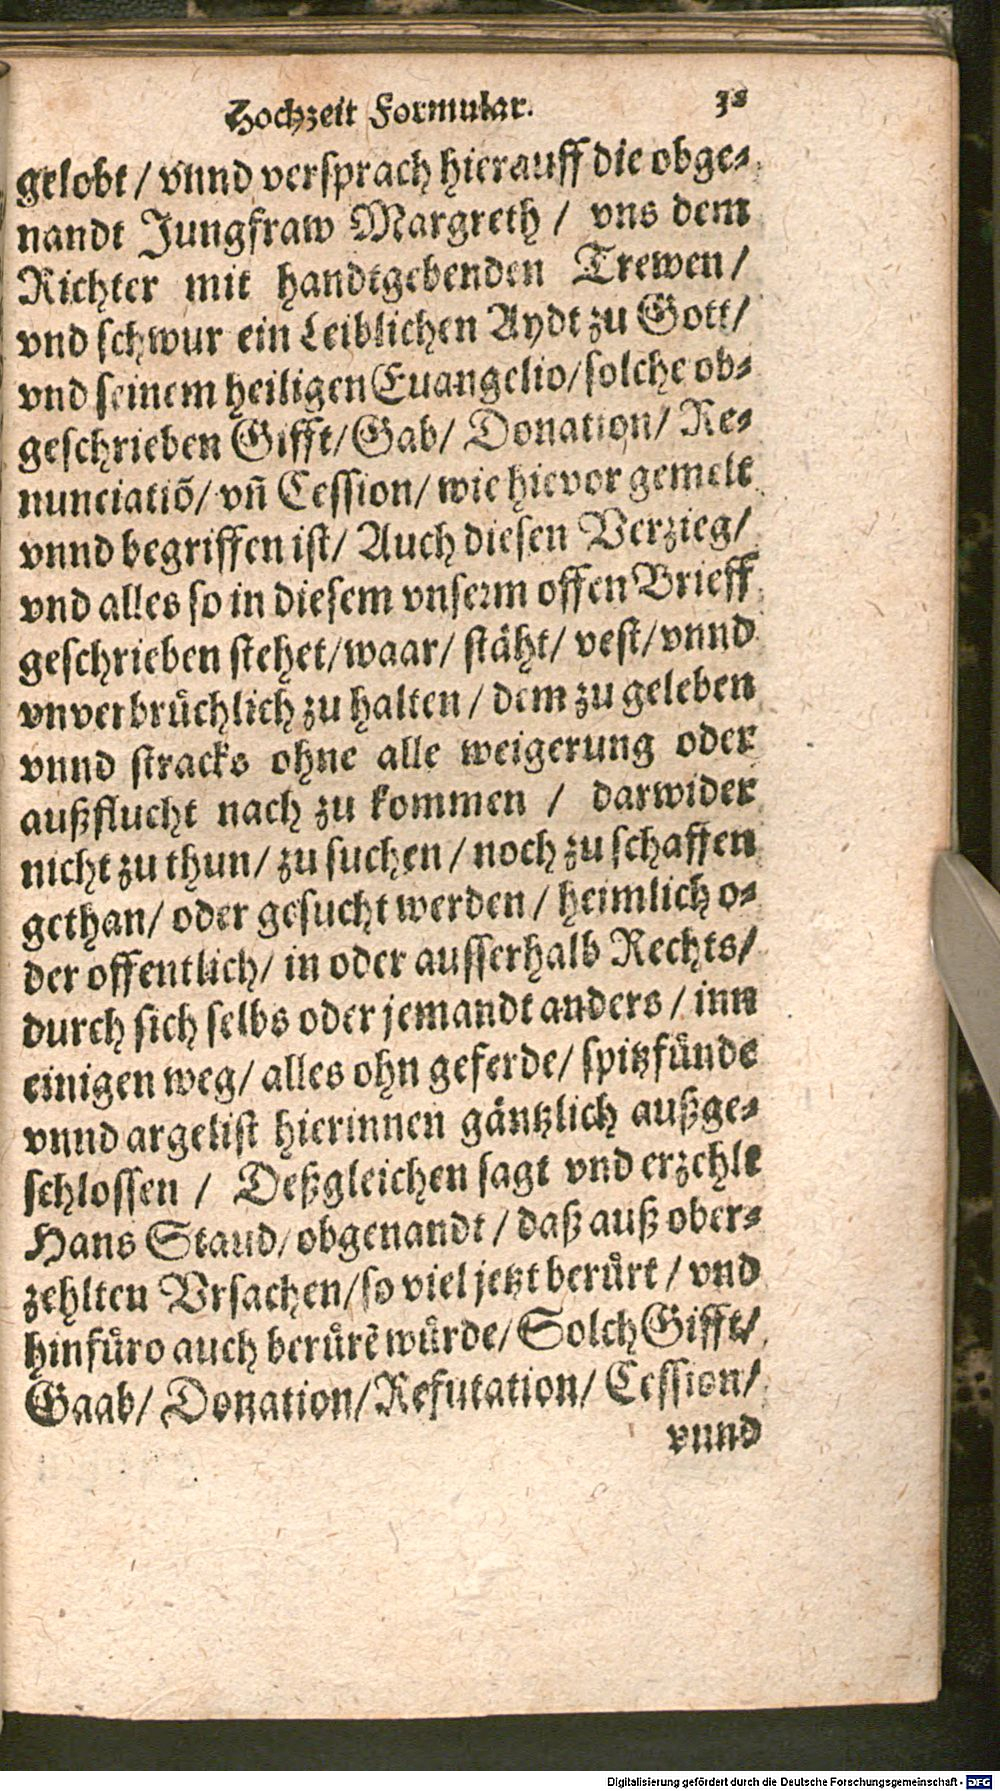 Hochzeit Formular.
gelobt / vnnd versprach hierauff die obge-
nandt Jungfraw Margreth / vns dem
Richter mit handtgebenden Trewen /
vnd schwur ein Leiblichen Aydt zu Gott /
vnd seinem heiligen Euangelio / solche ob-
geschrieben Gifft / Gab / Donation / Re-
nunciatiõ / vñ Cession / wie hievor gemelt
vnnd begriffen ist / Auch diesen Verzieg /
vnd alles so in diesem vnserm offen Brieff
geschrieben stehet / waar / stäht / vest / vnnd
vnverbrüchlich zu halten / dem zu geleben
vnnd stracks ohne alle weigerung oder
außflucht nach zu kommen / darwider
nicht zu thun / zu suchen / noch zu schaffen
gethan / oder gesucht werden / heimlich o-
der offentlich / in oder ausserhalb Rechts /
durch sich selbs oder jemandt anders / inn
einigen weg / alles ohn geferde / spitzfünde
vnnd argelist hierinnen gäntzlich außge-
schlossen / Deßgleichen sagt vnd erzehlt
Hans Staud / obgenandt / daß auß ober-
zehlten Vrsachen / so viel jetzt berürt / vnd
hinfüro auch berürẽ würde / Solch Gifft /
Gaab / Donation / Refutation / Cession /
vnnd
Digitalisierung gefördert durch die Deutsche Forschungsgemeinschaft - DFG